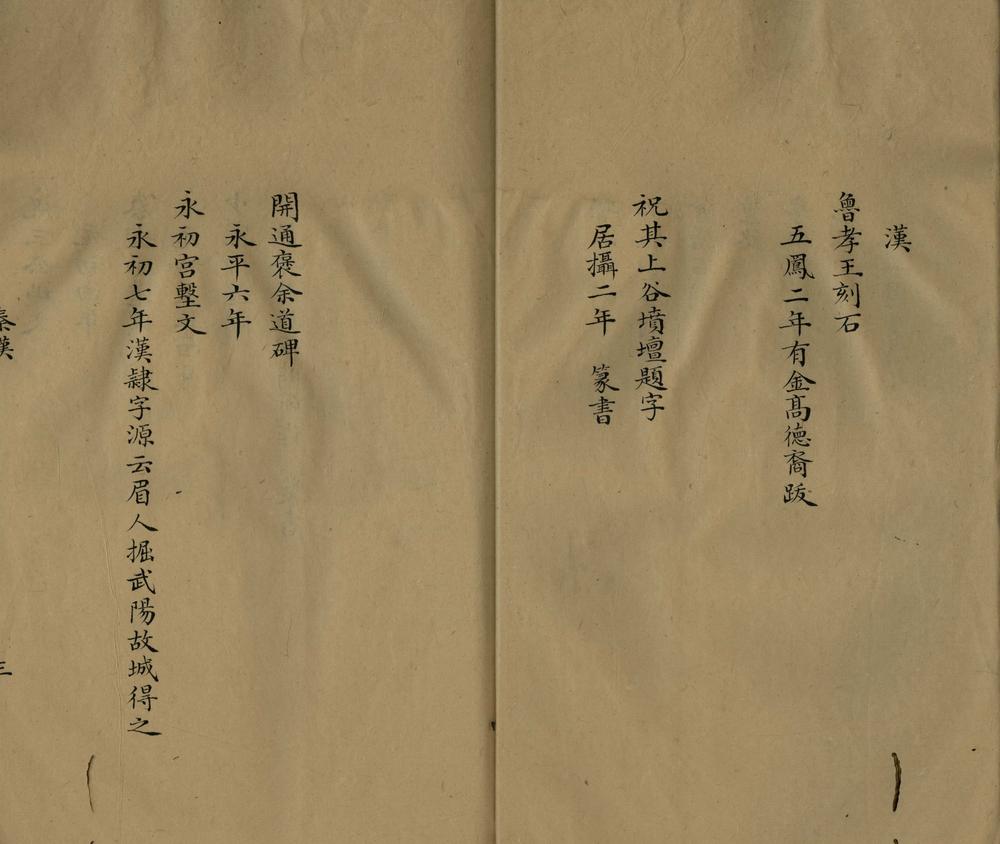 漢
魯孝王刻石
五鳳二年有金髙德裔跋
祝其上谷墳壇題字
居攝二年　篆書
開通褒余道碑
永平六年
永初宮墼文
永初七年漢隷字源云眉人掘武陽故城得之
秦漢
三